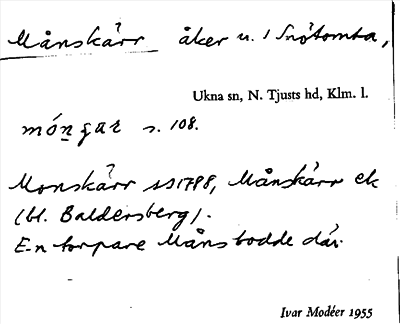 Månskärr åker u. 1 Snötomta,
Ukna sn, N. Tjusts hd, Klm. l.
móṉgar s. 108.
Monskärr SS 1788, Månskärr ek
(bl. Baldersberg).
En torpare Måns bodde där.
Ivar Modéer 1955